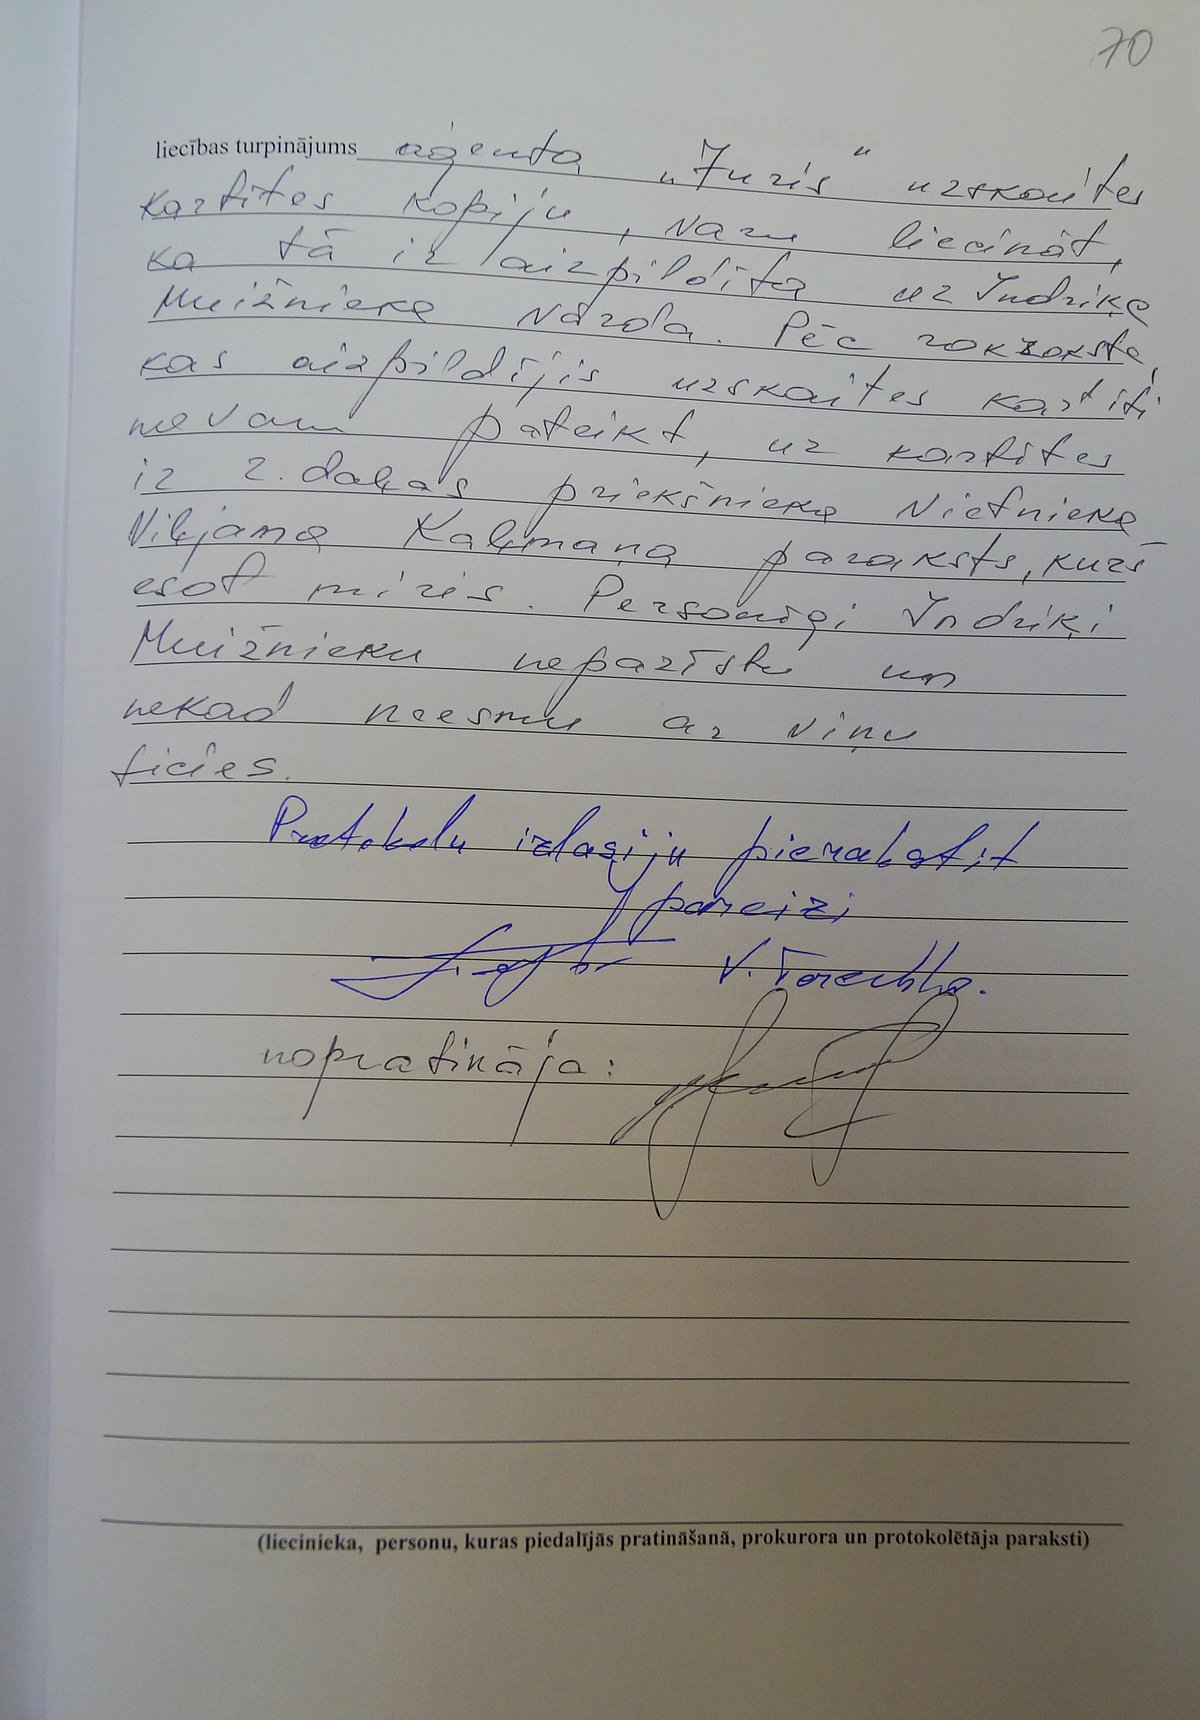 70
liecības turpinājums aģenta „Juris" uzskaites
kartītes kopiju, varu liecināt,
ka tā ir aizpildīta uz Indriķa
Muižnieka vārda. Pēc rokraksta,
kas aizpildījis uzskaites kartīti
nevaru pateikt, uz kartītes
ir 2. daļas priekšnieka vietnieka
Viļjama Kaļmaņa paraksts, kurš
esot miris. Personīgi Indriķi
Muižnieku nepazīstu un
nekad neesmu ar viņu
ticies.
Protokolu izlasīju pierakstīt
pareizi
V.
nopratināja:
(liecinieka, personu, kuras piedalījās pratināšanā, prokurora un protokolētāja paraksti)